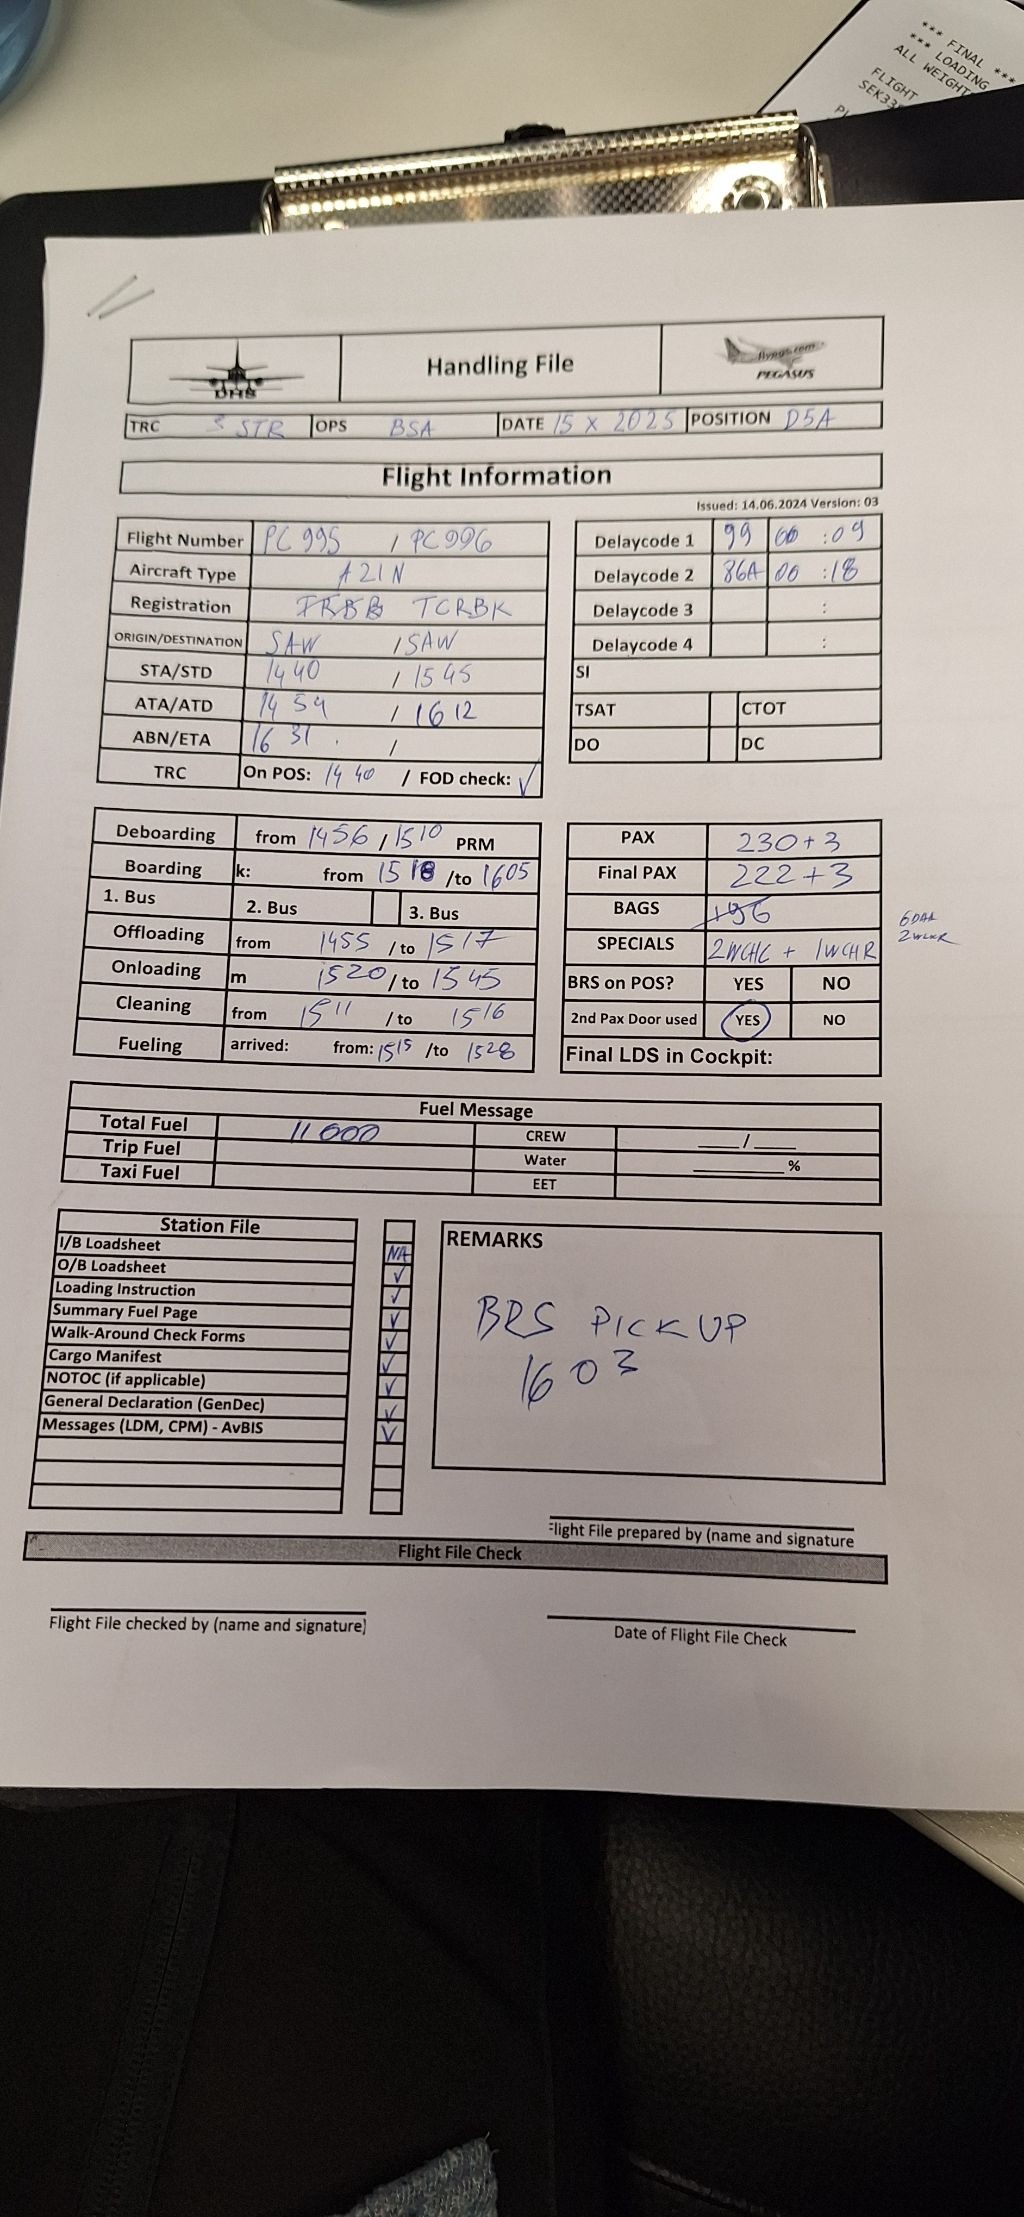 *** FINAL ***
*** LOADING
ALL WEIGHT
FLIGHT
DHS
Handling File
flypgs.com
PEGASUS
TRC STR OPS BSA DATE 15 X 2025 POSITION D5A
Flight Information
Issued: 14.06.2024 Version: 03
Flight Number PC 995 / PC 996
Aircraft Type A21N
Registration TCRBK
ORIGIN/DESTINATION SAW / SAW
STA/STD 1440 / 1545
ATA/ATD 1454 / 1612
ABN/ETA 16 31 . /
TRC On POS: 14 40 / FOD check: ✓
Delaycode 1 99 00 :09
Delaycode 2 86A 00 :18
Delaycode 3 :
Delaycode 4 :
SI
TSAT CTOT
DO DC
Deboarding from 1456 / 1510 PRM
Boarding k: from 1518 /to 1605
1. Bus 2. Bus 3. Bus
Offloading from 1455 / to 1517
Onloading m 1520 / to 1545
Cleaning from 1511 / to 1516
Fueling arrived: from: 1515 /to 1528
PAX 230+3
Final PAX 222+3
BAGS
SPECIALS 2WCHC + 1WCHR
BRS on POS? YES NO
2nd Pax Door used YES NO
Final LDS in Cockpit:
6DAA
Fuel Message
Total Fuel 11 000 CREW ___/___
Trip Fuel Water ______ %
Taxi Fuel EET
Station File
I/B Loadsheet NA
O/B Loadsheet ✓
Loading Instruction ✓
Summary Fuel Page ✓
Walk-Around Check Forms ✓
Cargo Manifest ✓
NOTOC (if applicable) ✓
General Declaration (GenDec) ✓
Messages (LDM, CPM) - AvBIS ✓
REMARKS
BRS PICK UP
1603
Flight File prepared by (name and signature
Flight File Check
Flight File checked by (name and signature)
Date of Flight File Check